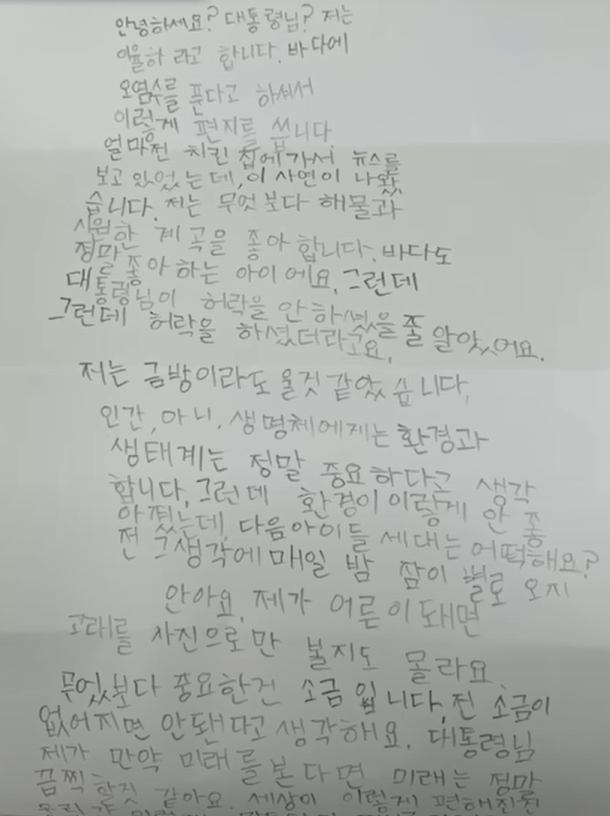 안녕하세요? 대통령님? 저는
이율하 라고 합니다. 바다에
오염수를 푼다고 하셔서
이렇게 편지를 씁니다.
얼마전 치킨 집에가서 뉴스를
보고 있었는데, 이 사연이 나왔
습니다. 저는 무엇보다 해물과
시원한 계곡을 좋아합니다. 바다도
정말 좋아하는 아이에요. 그런데
대통령님이 허락을 안하셨을줄 알았어요.
그런데 허락을 하셨더라고요.
저는 금방이라도 울것 같았습니다.
인간, 아니. 생명체에게는 환경과
생태계는 정말 중요하다고 생각
합니다. 그런데 환경이 이렇게 안 좋
아 졌는데, 다음아이들 세대는 어떡해요?
전 그생각에 매일 밤 잠이 별로 오지
안아요. 제가 어른이 돼면
고래를 사진으로만 볼지도 몰라요.
무엇보다 중요한건 소금입니다. 전 소금이
없어지면 안됀다고 생각해요. 대통령님
제가 만약 미래를 본다면 미래는 정말
끔찍할것 같아요. 세상이 이렇게 편해진건